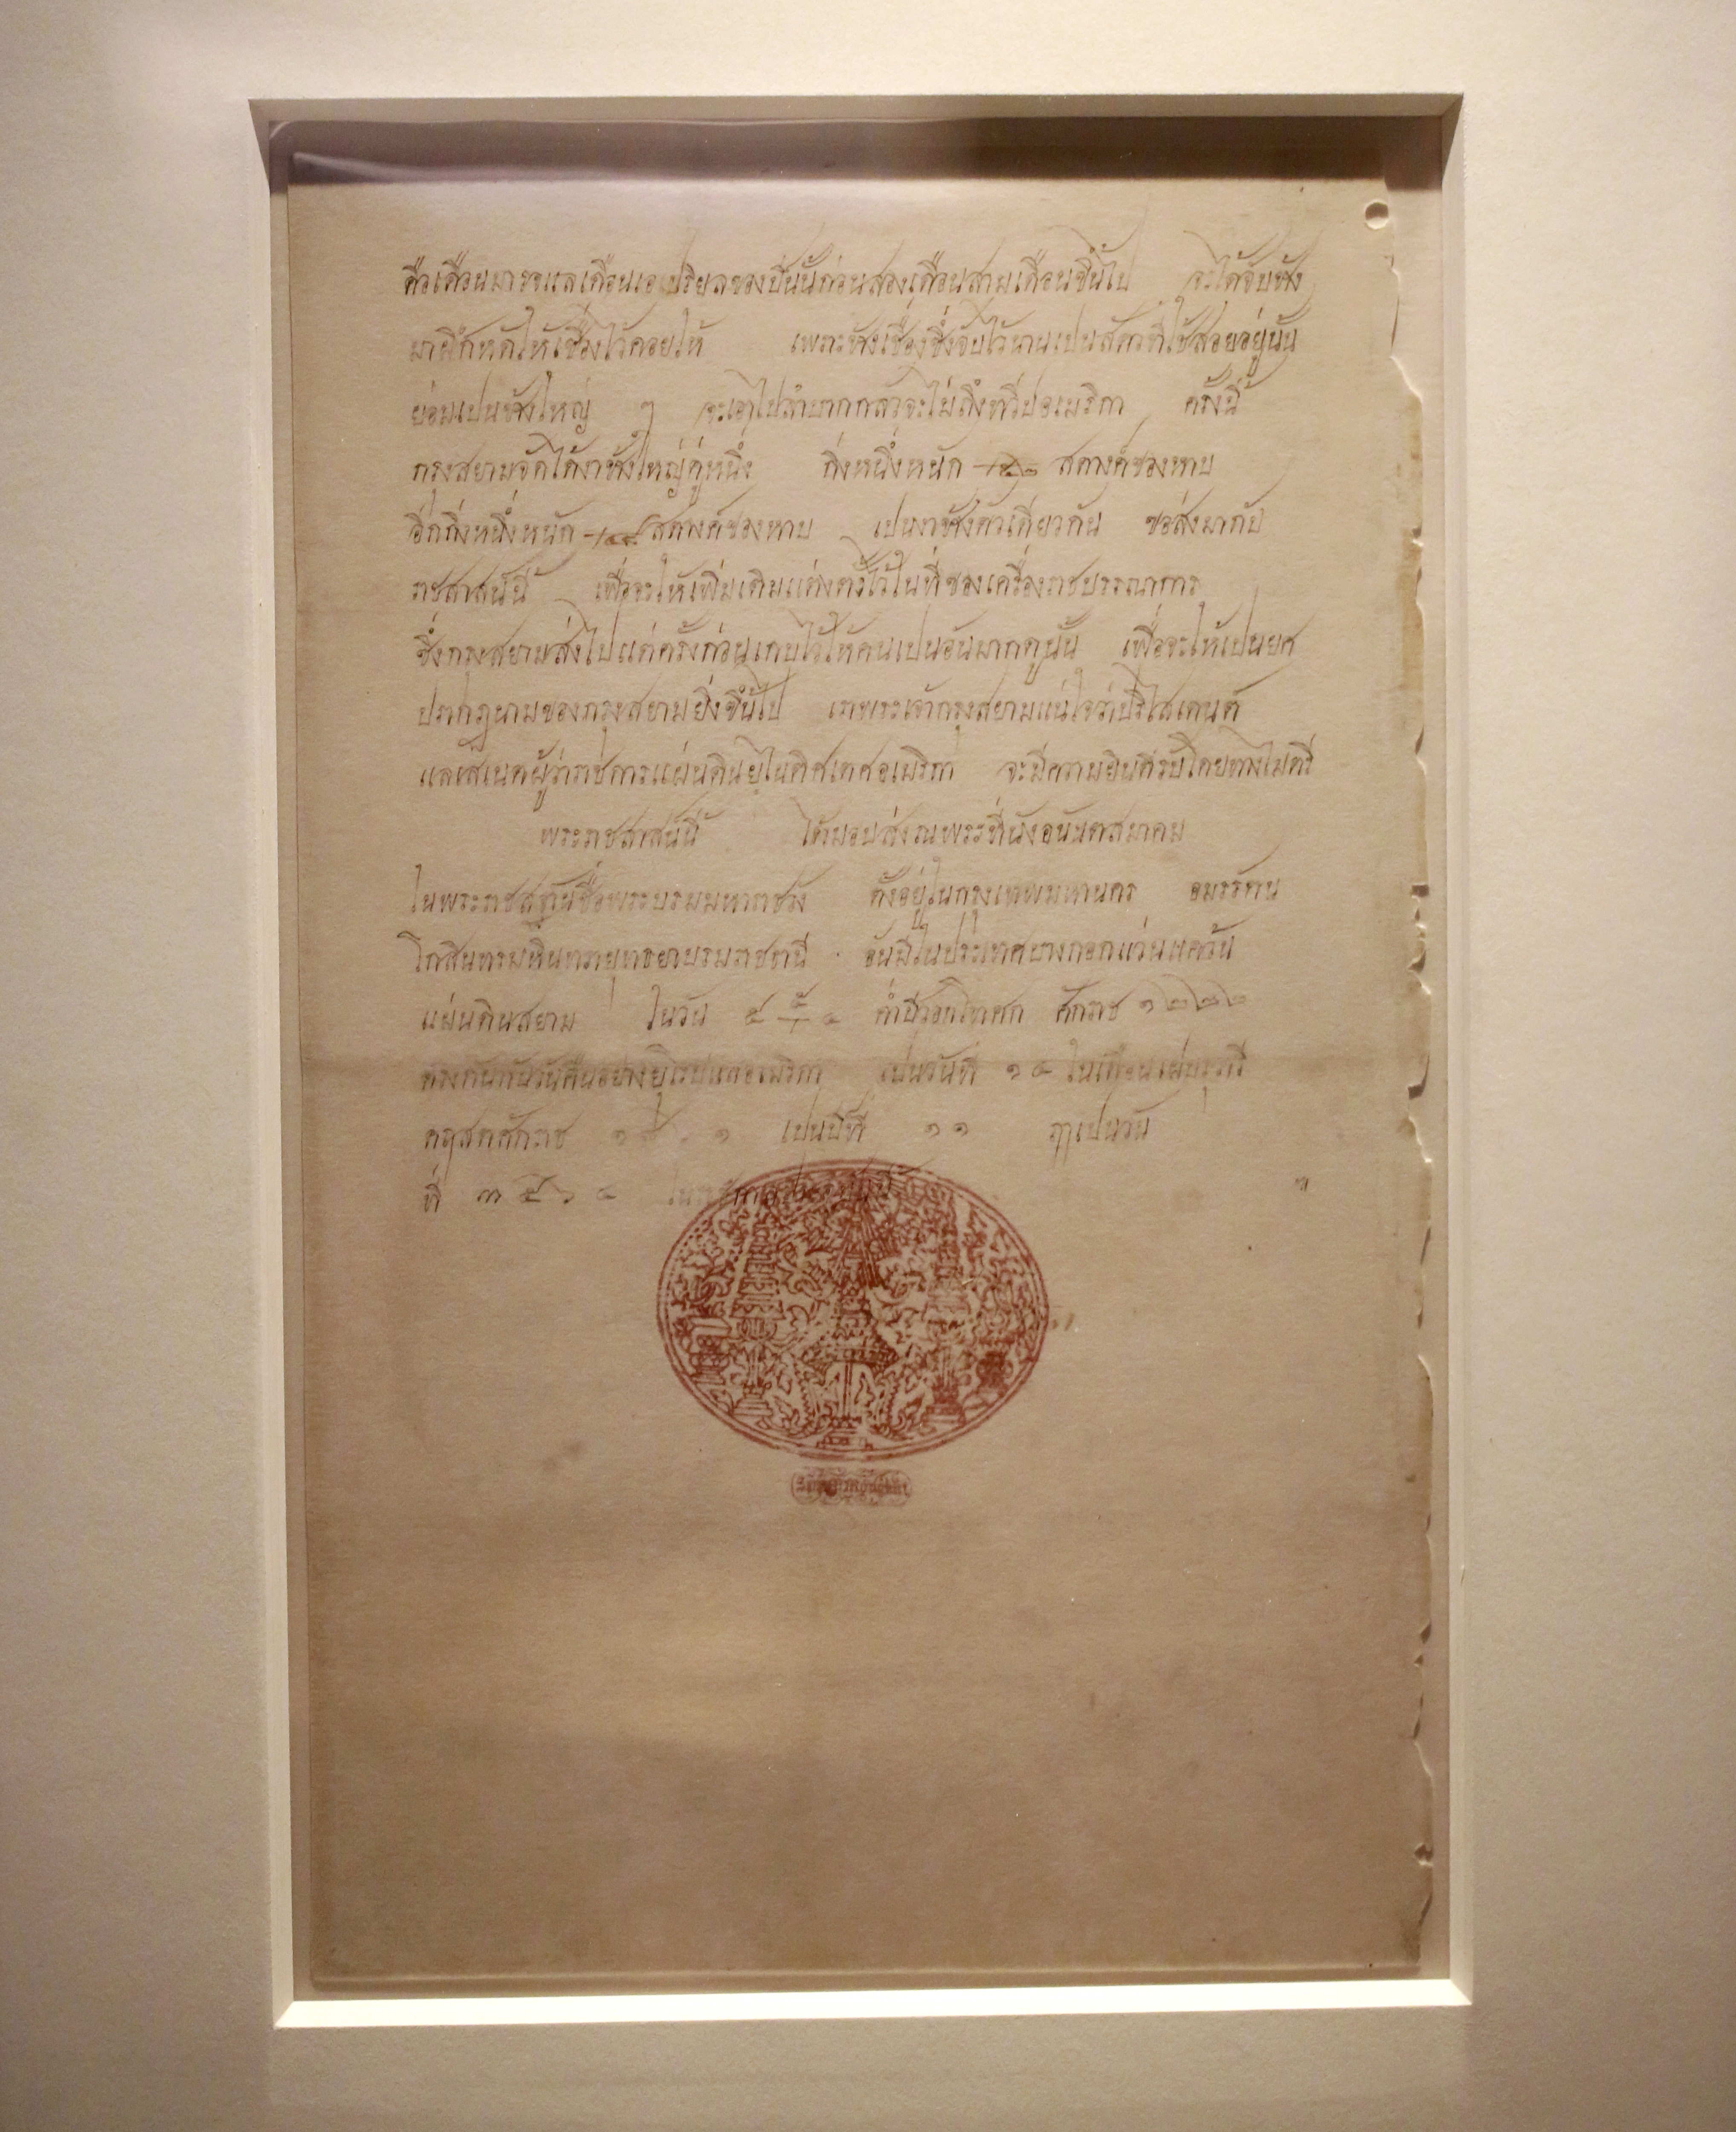 คือเดือนมาชแลเดือนเอเปริยลของปีนั้นก่อนสองเดือนสามเดือนขึ้นไป จะได้จับช้าง
มาฝึกหัดให้เชื่องไว้คอยให้ เพราะช้างเชื่องซึ่งจับไว้นานเปนสัตวที่ใช้สอยอยู่นั้น
ย่อมเปนช้างใหญ่ ๆ จะเอาไปลำบากกลัวจะไม่ถึงทวีปอเมริกา ครั้งนี้
กรุงสยามจัดได้งาช้างใหญ่คู่หนึ่ง กิ่งหนึ่งหนัก สตางค์ของหาบ
อีกกิ่งหนึ่งหนัก สตางค์ของหาบ เปนงาช้างตัวเดียวกัน ขอส่งมากับ
ราชสาสน์นี้ เพื่อจะให้เพิ่มเติมแต่งตั้งไว้ในที่ของเครื่องราชบรรณาการ
ซึ่งกรุงสยามส่งไปแต่ครั้งก่อนเกบไว้ให้คนเปนอันมากดูนั้น เพื่อจะให้เปนยศ
ปรากฏนามของกรุงสยามยิ่งขึ้นไป เราพระเจ้ากรุงสยามแน่ใจว่าปริไสเดนต์
แลเสเนตผู้ว่าราชการแผ่นดินยุไนติศเตศอเมริกา จะมีความยินดีรับโดยทางไมตรี
พระราชสาสน์นี้ ได้มอบส่งณพระที่นั่งอนันตสมาคม
ในพระราชสฐานชื่อพระบรมมหาราชวัง ตั้งอยู่ในกรุงเทพมหานคร อมรรัตน
โกสินทรมหินทรายุทธยาบรมราชธานี อันมีในประเทศบางกอกแว่นแคว้น
แผ่นดินสยาม ในวัน ๕ ๕ ๔ ค่ำปีวอกโทศก ศักราช ๑๒๒๒
ตรงกันกับวันคืนอย่างยุโรปแลอเมริกา เปนวันที่ ๑๔ ในเดือนเฝบรุวารี
คฤสตศักราช ๑๘๖๑ เปนปีที่ ๑๑ ฤๅเปนวัน
ที่ ๓๕๖๔ ในรัชกาลประจุบันนี้